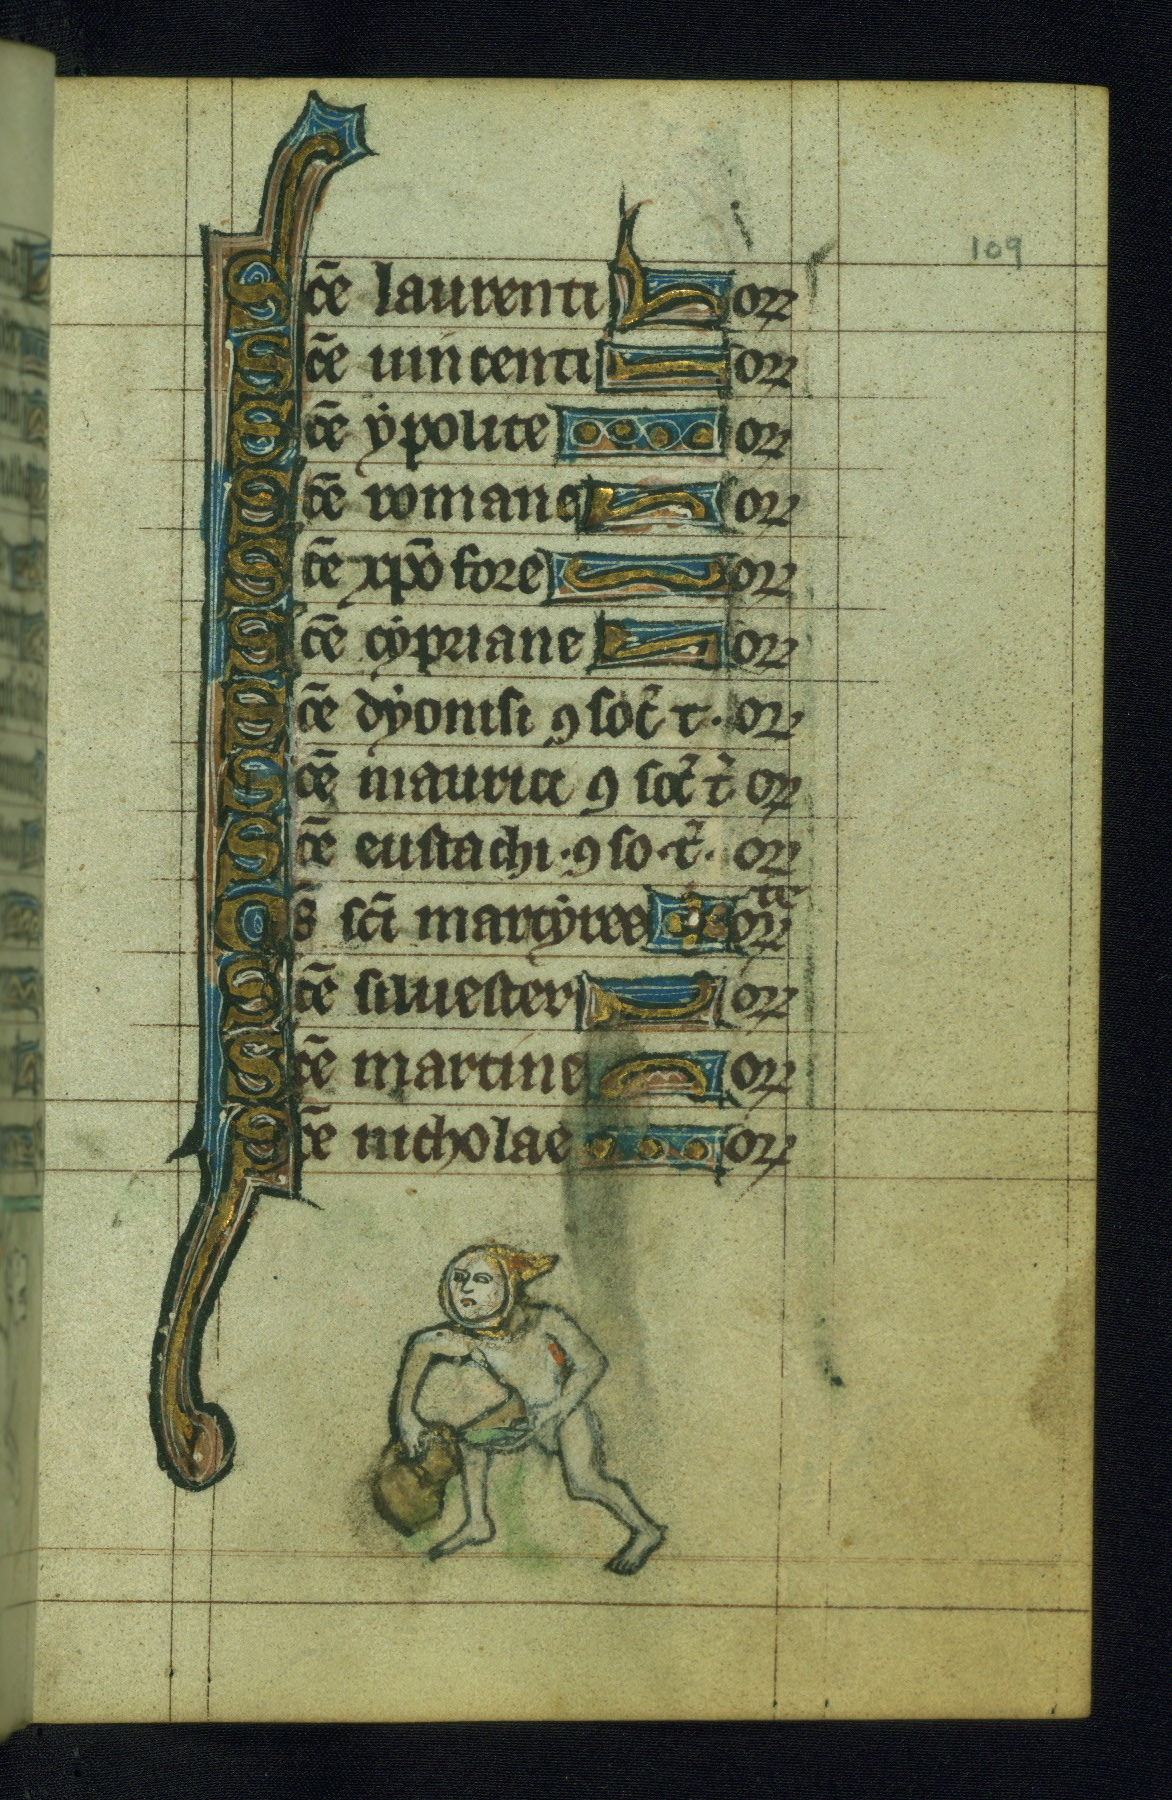 109
Sc̄e laurenti orͣ
Sc̄e uincenti or
Sc̄e ẏpolite or
Sc̄e romane or
Sc̄e xp̄ofore or
Sc̄e cẏpriane or
Sc̄e dẏonisi ꝯ soc̄ t. or
Sc̄e maurici ꝯ soc̄ t̄ or
Sc̄e eustachi.ꝯ so.t̄. or
Om̄s sc̄i martẏres orate
Sc̄e siluester or
Sc̄e martine or
Sc̄e nicholae or